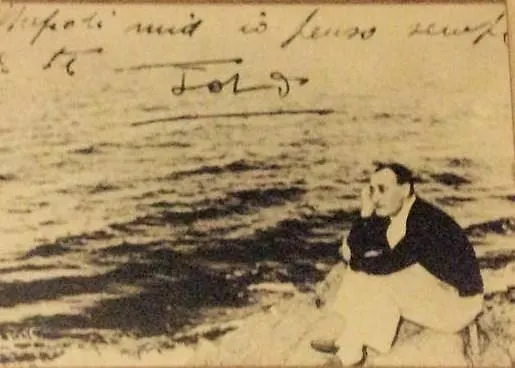 Napoli mia io penso sempr
a te
Totò